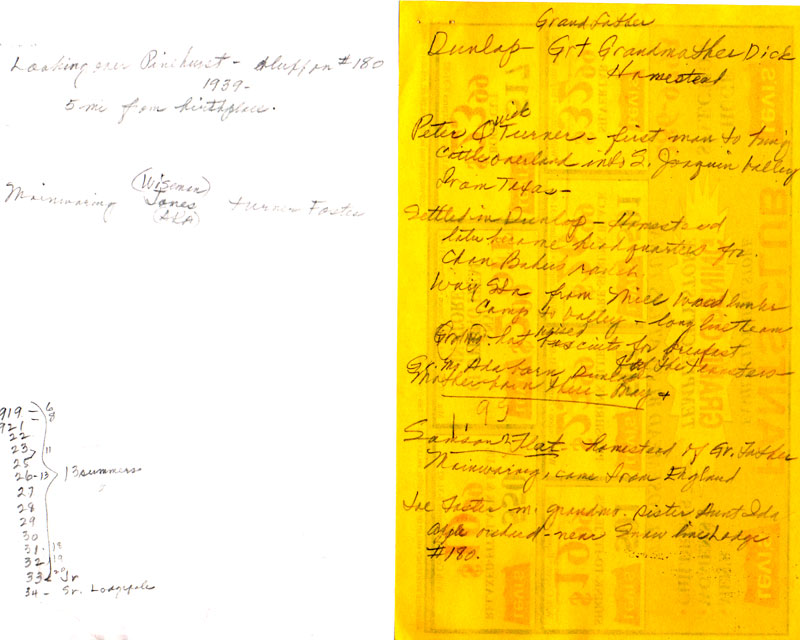 Looking over Pinehurst - bluff on #180
1939-
5 mi from birthplace.
(Wiseman)
Mainwaring Jones Turner Foster
(AKA)
919 - 6
921
22
23 11
25
26 - 13 13 summers
27
28
29
30
31 - 18
32 19
33 20 Jr
34 - Sr. Lodgepole
Grandfather
Dunlap - Grt Grandmother Dick
Homestead
Peter Quick Turner - first man to bring
cattle overland into S. Joaquin Valley
from Texas -
Settled in Dunlap - Homestead
later became headquarters for
Chan Baker's ranch
Way Sta from
Camp to Valley - long line team
hot biscuits for breakfast
raised
for the teamsters
Gr. M. Ada born Dunlap -
Mother born there - May 4
93
Samson Flat - homestead of Gr. Father
Mainwaring, came from England
Joe Foster m. grandmo. sister Aunt Ida
apple orchard - near Snow line Lodge
#180.